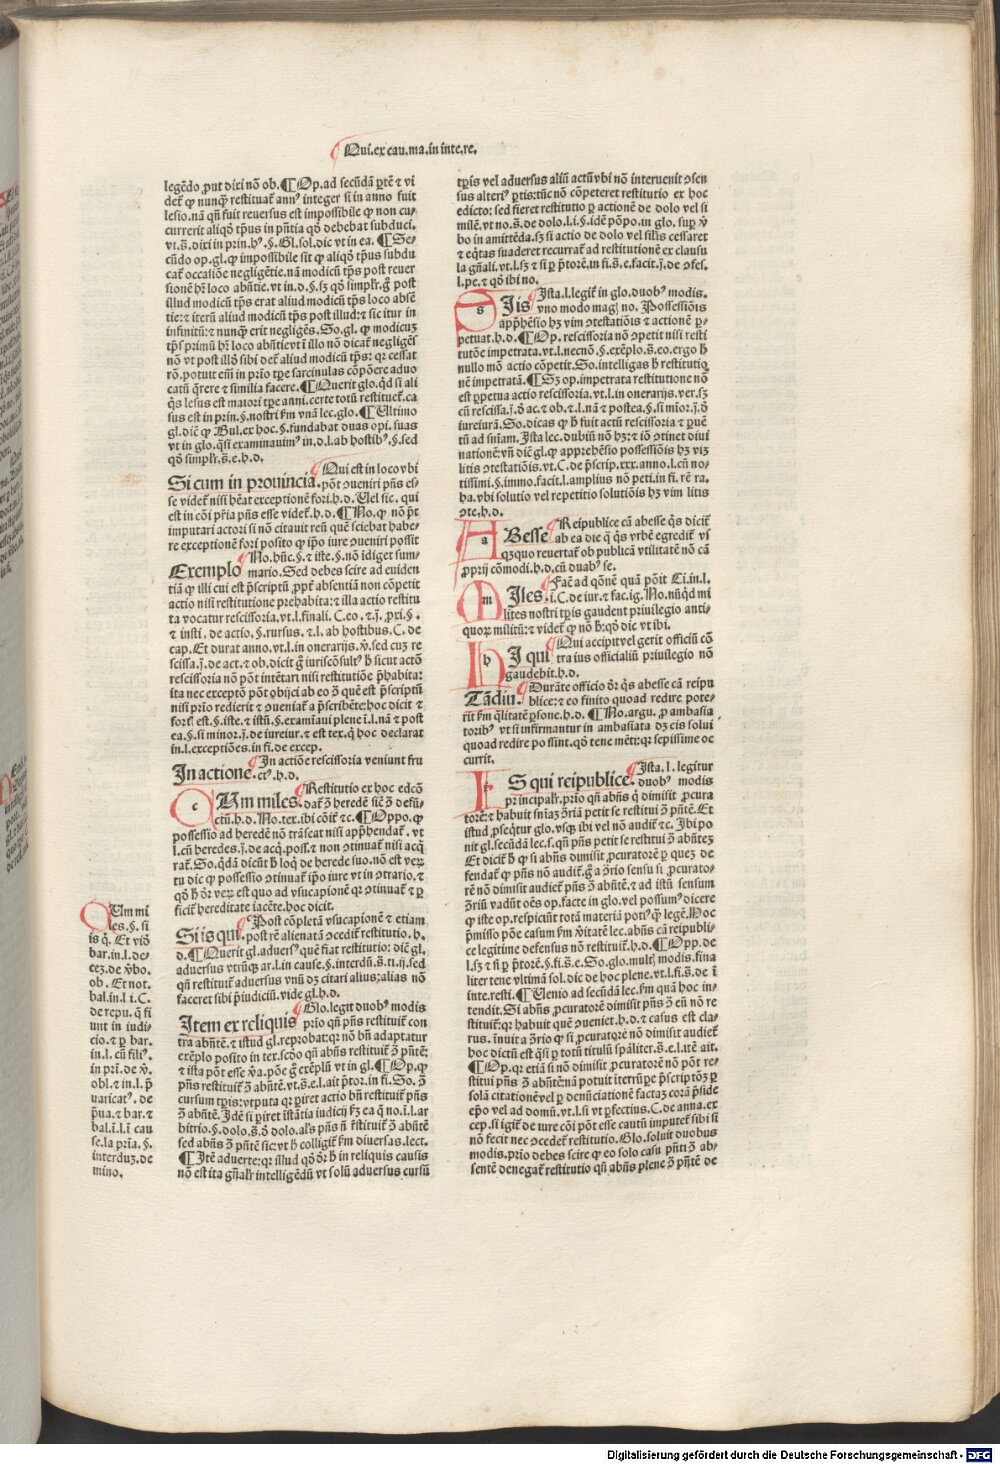 Qui.ex cau.ma.in inte.re.
legēdo ,put dixi nō ob. ¶ Op. ad secūdā ꝑtē ⁊ vi
det̄ ꝙ nunꝗ̄ restituat̄ annꝰ integer si in anno fuit
lesio. nā qn̄ fuit reuersus est impossibile ꝙ non cu-
currerit aliqđ tp̄us in pn̄tia qđ debebat subduci.
vt.s̄. dixi in prin.hꝰ.§. Gl. sol. dic vt in ea. ¶ Se-
cūdo op. gl̄ ꝙ impossibile sit ꝙ aliqđ tp̄us subdu
cat̄ occasiōe negligētie. nā modicū tp̄s post reuer
sionē hꝫ loco abn̄tie. vt in.d.§. sꝫ qđ simplr̄. g̊ post
illud modicū tp̄s erat aliud modicū tp̄s loco absē
tie: ⁊ iterū aliud modicū tp̄s post illud: ⁊ sic itur in
infinitū: ⁊ nunꝗ̄ erit negligēs. So. gl. ꝙ modicuꝫ
tp̄s primū hꝫ loco abn̄tie vt ī illo nō dicat̄ negligēs
nō vt post illō sibi det̄ aliud modicū tp̄s: qꝛ cessat
rō. potuit em̄ in prio tp̄e sarcinulas cōpōere aduo
catū q̄rere ⁊ similia facere. ¶ Querit glo. qd si ali
q̄s lesus est maiori tp̄e anni. certe totū restituet̄. ca
sus est in prin.§. nostri fm̄ vnā lec. glo. ¶ Ultimo
gl. dicē ꝙ Bul. ex hoc.§. fundabat duas opi. suas
vt in glo. q̄si examinauimꝰ in.d.l. ab hostibꝰ.§. sed
qđ simplr̄.s̄.e.h.d.
Qui est in loco vbi
Si cum in prouincia. pōt ꝯueniri pn̄s es-
se videt̄ nisi hēat exceptionē fori.h.d. Uel sic. qui
est in cōi pr̄ia pn̄s esse videt̄.h.d. ¶ No. ꝙ nō pt̄
imputari actori si nō citauit reū quē sciebat habe-
re exceptionē fori posito ꝙ ip̄o iure ꝯueniri possit
No. hūc.§. ⁊ iste.§. nō idiget sum-
Exemplo mario. Sed debes scire ad euiden
tiā ꝙ illi cui est p̄scriptū ,ppt̄ absentiā non cōpetit
actio nisi restitutione prehabita: ⁊ illa actio restitu
ta vocatur rescissoria. vt.l. finali. C. eo. ⁊.j.,pxi.§.
⁊ insti. de actio.§. rursus. ⁊.l. ab hostibus. C. de
cap. Et durat anno. vt.l. in onerarijs.v̄. sed cuꝫ re
scissa.j. de act. ⁊ ob. dicit g̊ iuriscōsultꝰ ħ sicut actō
rescissoria nō pōt intētari nisi restitutiōe p̄habita:
ita nec exceptō pōt obijci ab eo ꝯ̄ quē est p̄scriptū
nisi prio redierit ⁊ ꝯueniat̄ a p̄scribēte: hoc dicit ⁊
forꝰ est.§. iste. ⁊ istū.§. examīaui plene ī.l. nā ⁊ post
ea.§. si minor.j. de iureiur. ⁊ est tex. q̄ hoc declarat
in.l. exceptiōes. in fi. de excep.
In actiōe rescissoria veniunt fru
In actione. ctꝰ.h.d.
Restitutio ex hoc edcō
CUm miles. dat̄ ꝯ̄ heredē sicē ꝯ̄ defū-
ctū.h.d. No. tex. ibi cōit̄ ⁊c. ¶ Oppo. ꝙ
possessio ad heredē nō trāseat nisi app̄hendat̄. vt
l. cū heredes.j. de acq̄. poss. ⁊ non ꝯtinuat̄ nisi acq̄
rat̄. So. q̄dā dicūt ħ loq̄ de herede suo. nō est verꝝ
tu dic ꝙ possessio ꝯtinuat̄ ip̄o iure vt in ꝯtrario. ⁊
qđ ħ dr̄ verꝝ est quo ad vsucapionē qꝛ ꝯtinuat̄ ⁊ ꝑ
ficit̄ hereditate iacēte. hoc dicit.
Post cōpletā vsucapionē ⁊ etiam
Si is qui. post rē alienatā ꝯcedit̄ restitutio.h.
d. ¶ Querit gl. aduersꝰ quē fiat restitutio: dicē gl.
aduersus vtrūqꝫ ar.l. in cause.§. interdū.s̄.ti.ij. sed
qn̄ restituit̄ aduersus vnū dꝫ citari alius: alias nō
faceret sibi p̄iudiciū. vide gl.h.d.
Glo. legit duobꝰ modis
Item ex reliquis prio qn̄ pn̄s restituit̄ con
tra abn̄tē. ⁊ istud gl. reprobat: qꝛ nō bn̄ adaptatur
exēplo posito in tex. scdo qn̄ abn̄s restituit̄ ꝯ̄ pn̄tē:
⁊ ista pōt esse v̄a. pōe g̊ exēplū vt in gl. ¶ Op. ꝙ
pn̄s restituit̄ ꝯ̄ abn̄tē. vt.s̄.e.l. ait p̄tor. in fi. So. ꝯ̄
cursum tp̄is: vtputa qꝛ ꝑiret actio bn̄ restituit̄ pn̄s
ꝯ̄ abn̄tē. Idē si ꝑiret īstātia iudicij fꝫ ea q̄ no. ī.l. ar
bitrio.§. dolo.s̄.đ dolo. als̄ pn̄s n̄ r̄stituit̄ ꝯ̄ abn̄tē
sed abn̄s ꝯ̄ pn̄tē sic. vt ħ colligit̄ fm̄ diuersas. lect.
¶ Itē aduerte: qꝛ illud qđ dr̄ ħ in reliquis causis
nō est ita gn̄alr̄ intelligēdū vt solū aduersus cursū
CUm mi
les.§. si
is q̄. Et vīo
bar. in.l. de-
ceꝫ. de v̄bo.
ob. Et not.
bal. in.l i. C.
de repu. q̄ fi
unt in iudi-
cio. ⁊ ꝑ bar.
in.l. cū filiꝰ.
in prī. de v̄.
obl. ⁊ in.l. p̄
uaricatꝰ. de
p̄ua. ⁊ bar. ⁊
bal. ī.l. ī cau
se. la prīa.§.
interduꝫ. de
mino.
tp̄is vel aduersus aliū actū vbi nō interuenit ꝯsen
sus alteriꝰ ꝑtis: tūc nō cōpeteret restitutio ex hoc
edicto: sed fieret restitutio ꝑ actionē de dolo vel si
milē. vt no.s̄. de dolo.l.i.§. idē pōpo. īu glo. sup̄ v̄
bo in amittēda. sꝫ si actio de dolo vel silis cessaret
⁊ eq̄tas suaderet recurrat̄ ad restitutionē ex clausu
la gn̄ali. vt.l. sꝫ ⁊ si ꝑ p̄torē. in fi.s̄.e. facit.j. de ꝯfes.
l. pe. ⁊ qđ ibi no.
Ista.l. legit̄ in glo. duobꝰ modis.
SIis vno modo mag̊ no. Possessiōis
app̄hēsio hꝫ vim ꝯtestatiōis ⁊ actionē ꝑ-
petuat.h.d. ¶ Op. rescissoria nō ꝯpetit nisi resti
tutōe impetrata. vt.l. necnō.§. exēplo.s̄. eo. ergo ħ
nullo mō actio cōpetit. So. intelligas ħ restitutio
nē impetratā. ¶ Sꝫ op. impetrata restitutione nō
est ꝑpetua actio rescissoria. vt.l. in onerarijs. ver. sꝫ
cū rescissa.j.đ ac. ⁊ ob. ⁊.l. nā ⁊ postea.§. si mīor.j.đ
iureiurā. So. dicas ꝙ ħ fuit actū rescissoria ⁊ ꝑuē
tū ad sn̄iam. Ista lec. dubiū nō hꝫ: ⁊ iō ꝯtinet diui
nationē: vn̄ dicē gl. ꝙ app̄ehēsio possessiōis hꝫ viꝫ
litis ꝯtestatiōis. vt. C. de p̄scrip. xxx. anno.l. cū no-
tissimi.§. immo. facit.l. amplius nō peti. in fi. rē ra.
ha. vbi solutio vel repetitio solutiōis hꝫ vim litis
ꝯte.h.d.
Reipublice cā abesse q̄s dicit̄
ABesse ab ea die q̄ q̄s vrbē egredit̄ vs
qꝫquo reuertat̄ ob publicā vtilitatē nō cā
,pprij cōmodi.h.d. cū duabꝰ se.
Fac̄ ad qōnē quā pōit Ci. in.l.
MIles. ī. C. de iur. ⁊ fac. ig. No. nūq̄d mi
lites nostri tp̄is gaudent priuilegio anti-
quoꝝ militū: ⁊ videt̄ ꝙ nō ħ: qđ dic vt ibi.
Qui accipit vel gerit officiū cō
HI qui tra ius officialiū priuilegio nō
gaudebit.h.d.
Durāte officio dr̄ q̄s abesse cā reipu
Tādiu. blice: ⁊ eo finito quoad redire pote-
rit fm̄ q̄litatē ꝑsone.h.d. ¶ No. argu. ꝓ ambasia
toribꝰ vt si infirmantur in ambasiata dꝫ eis solui
quoad redire possint. qđ tene mēti: qꝛ sepissime oc
currit.
Ista.l. legitur
IS qui reipublice. duobꝰ modis
principalr̄. prio qn̄ abn̄s q̄ dimisit ꝓcura
torē: ⁊ habuit sn̄iaꝫ ꝯ̄riā petit se restitui ꝯ̄ pn̄tē. Et
istud ꝓseq̄tur glo. vsqꝫ ibi vel nō audit̄ ⁊c. Ibi po
nit gl. secūdā lec.s. qn̄ pn̄s petit se restitui ꝯ̄ abn̄teꝫ
Et dicit ħ ꝙ si abn̄s dimisit ꝓcuratorē ꝑ queꝫ de
fendat̄ ꝙ pn̄s nō audit̄. g̊ a ꝯ̄rio sensu si ꝓcurato-
rē nō dimisit audiet̄ pn̄s ꝯ̄ abn̄tē. ⁊ ad istū sensum
ꝯ̄riū vadūt oēs op. facte in glo. vel possumꝰ dicere
ꝙ iste op. respiciūt totā materiā potiꝰ ꝗ̄ legē. Hoc
p̄misso pōe casum fm̄ v̄itatē lec. abn̄s cā reipubli-
ce legitime defensus nō restituit̄.h.d. ¶ Opp. de
l. sꝫ ⁊ si ꝑ p̄torē.§. fi.s̄.e. So. glo. multꝰ modis. fina
liter tene vltimā sol. dic de hoc plene. vt.l. fi.s̄. de ī
inte. resti. ¶ Uenio ad secūdā lec. fm̄ quā hoc in-
tendit. Si abn̄s ꝓcuratorē dimisit pn̄s ꝯ̄ eū nō re
stituit̄: qꝛ habuit quē ꝯueniet.h.d. ⁊ casus est cla-
rus. īnuit a ꝯ̄rio ꝙ si ꝓcuratorē nō dimisit audiet̄
hoc dictū est q̄si ꝑ totū titulū sp̄aliter.s̄.e.l. itē ait.
¶ Op. qꝛ etiā si nō dimisit ꝓcuratorē nō pōt re-
stitui pn̄s ꝯ̄ abn̄tē: nā potuit iterrūpe p̄scriptōꝫ ꝑ
solā citationē vel ꝑ denūciationē factaꝫ corā p̄side
ep̄o vel ad domū. vt.l. si vt ꝑfectius. C. de anna. ex
cep. si igit̄ de iure cōi pōt esse cautū imputet̄ sibi si
nō fecit nec ꝯcedet̄ restitutio. Glo. soluit duobus
modis. prio debes scire ꝙ eo solo casu pn̄ti ꝯ̄ ab-
sentē denegat̄ restitutio qn̄ abn̄s plene ꝯ̄ pn̄tē de
Digitalisierung gefördert durch die Deutsche Forschungsgemeinschaft - DFG